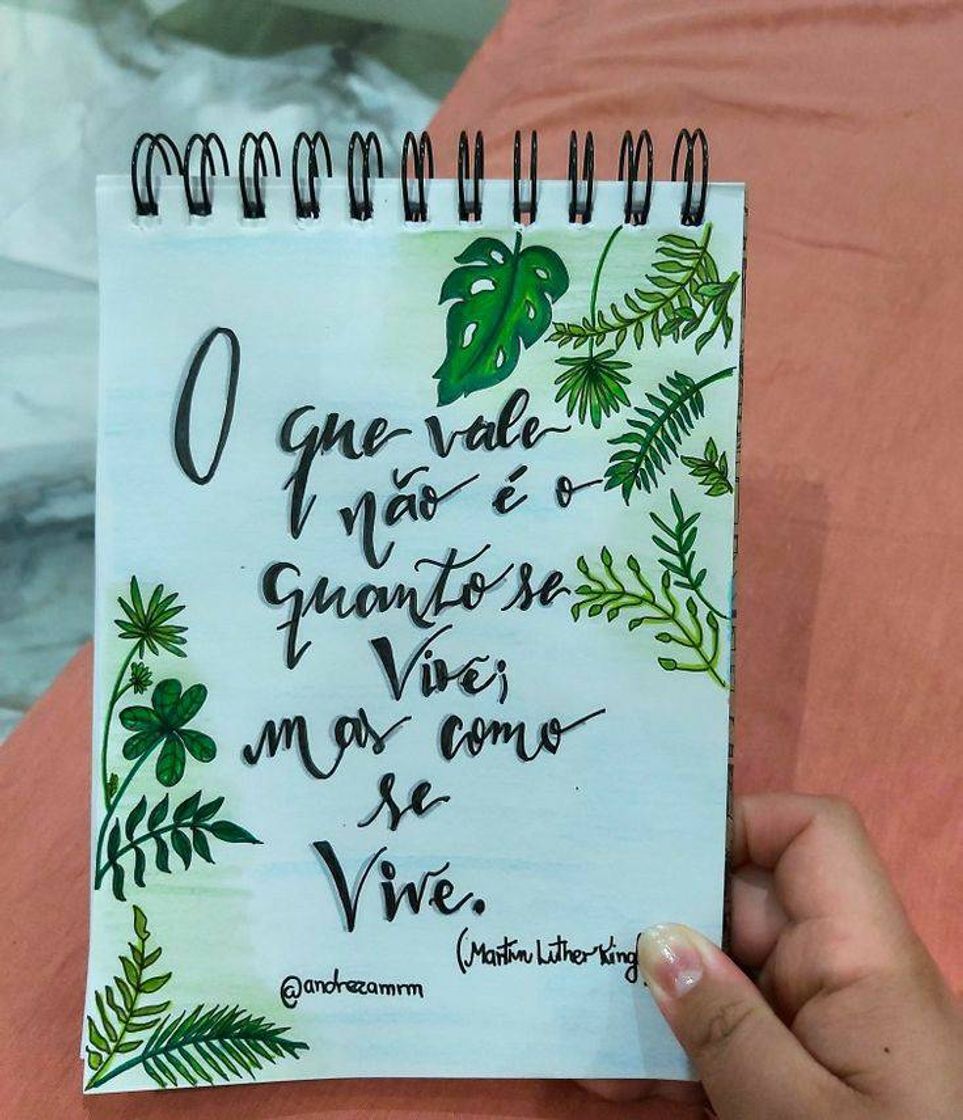 O que vale
não é o
quanto se
Vive;
mas como
se
Vive.
(Martin Luther King)
@andrezamrm